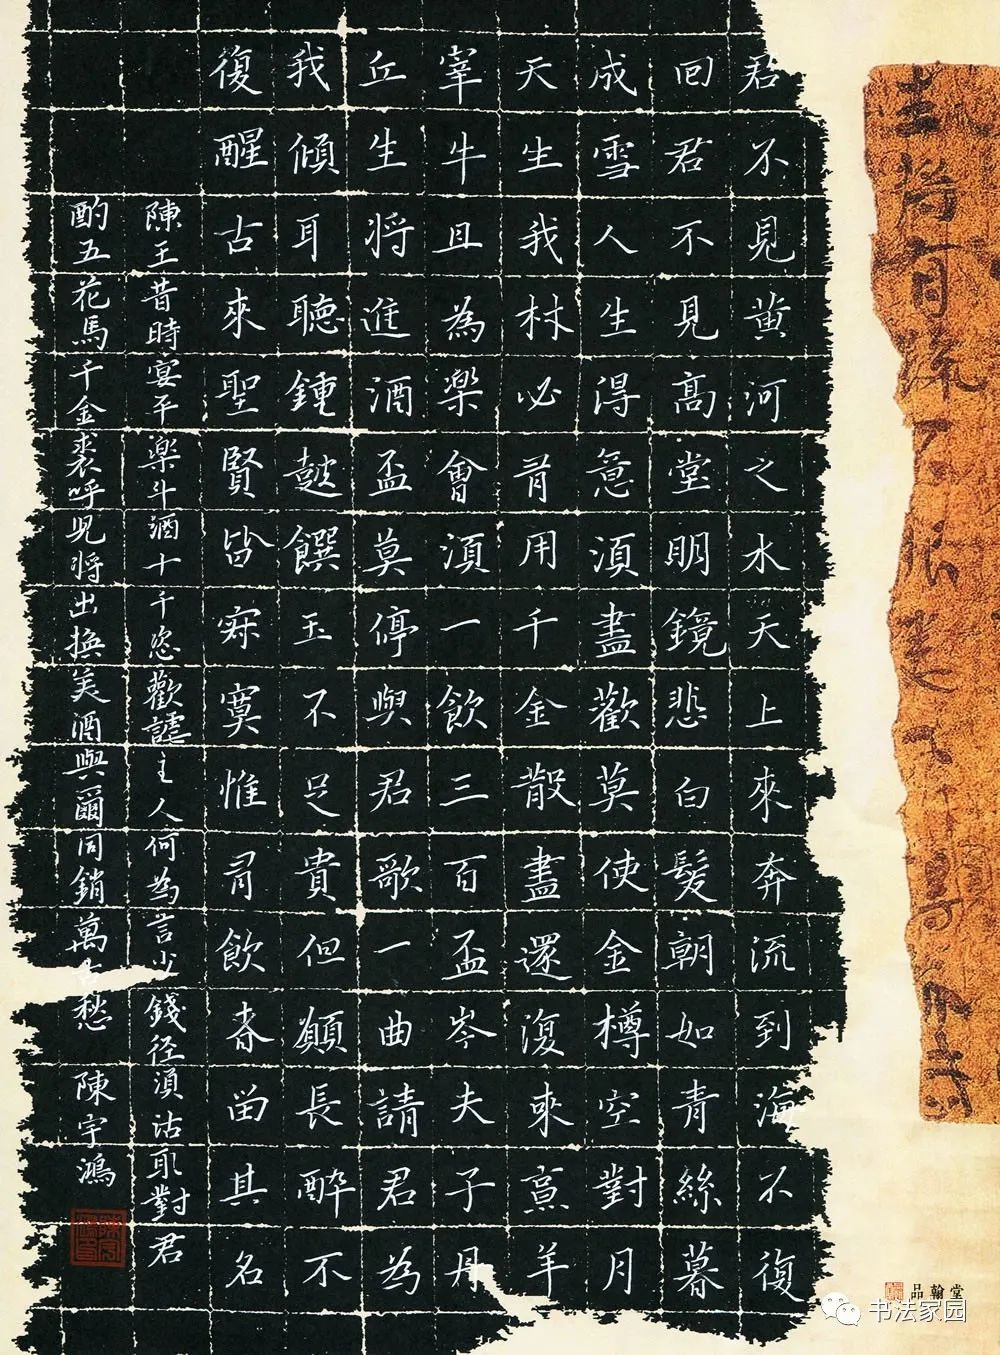 君不見黃河之水天上來奔流到海不復
回君不見高堂明鏡悲白髮朝如青絲暮
成雪人生得意須盡歡莫使金樽空對月
天生我材必有用千金散盡還復來烹羊
宰牛且為樂會須一飲三百盃岑夫子丹
丘生將進酒盃莫停與君歌一曲請君為
我傾耳聽鍾鼓饌玉不足貴但願長醉不
復醒古來聖賢皆寂寞惟有飲者留其名
陳王昔時宴平樂斗酒十千恣歡謔主人何為言少錢徑須沽取對君
酌五花馬千金裘呼兒將出換美酒與爾同銷萬古愁 陳宇鴻
品翰堂
书法家园